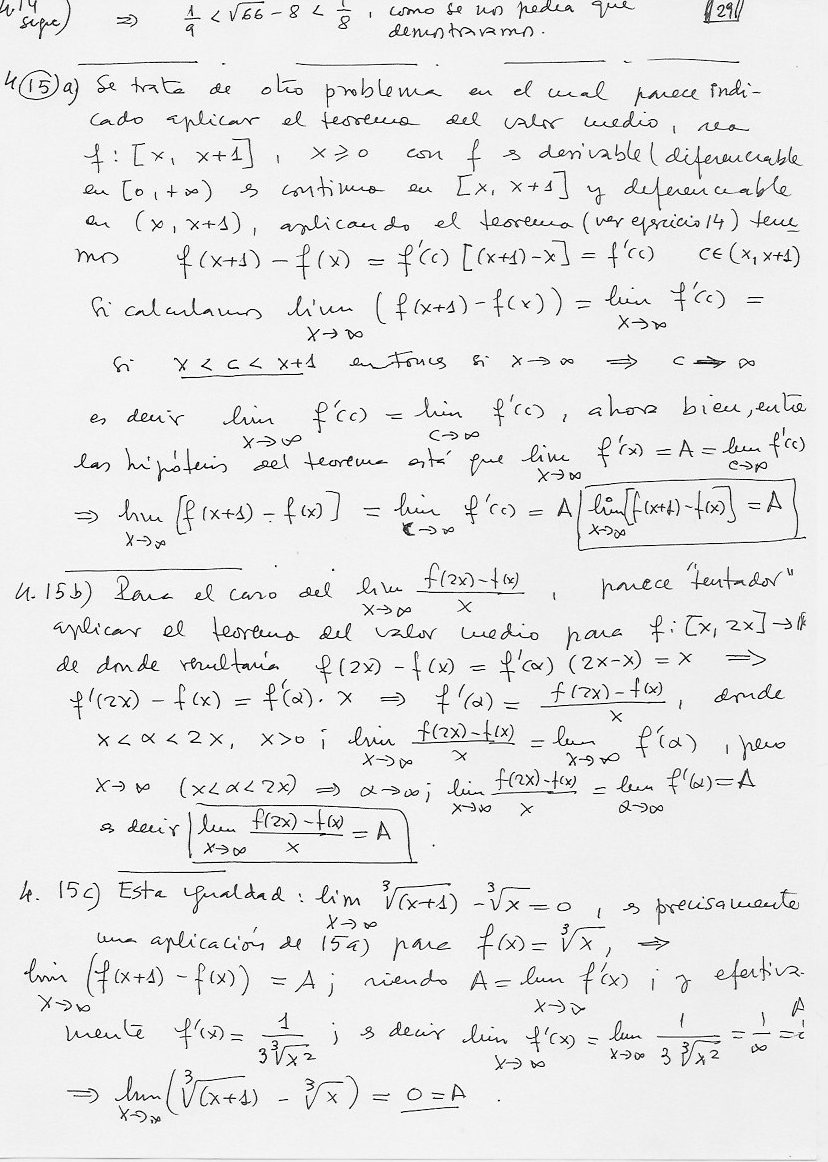 4.14 sigue) ⇒ 1/9 < √66 - 8 < 1/8, como se nos pedía que 29
demostráramos.
4.(15)a) Se trata de otro problema en el cual parece indi-
cado aplicar el teorema del valor medio, sea
f : [x, x+1], x ⩾ 0 con f es derivable (diferenciable
en [0, +∞) es continua en [x, x+1] y diferenciable
en (x, x+1), aplicando el teorema (ver ejercicio 14) tene
mos f(x+1) - f(x) = f'(c) [(x+1)-x] = f'(c) c∈(x, x+1)
Si calculamos lim x→∞ (f(x+1) - f(x)) = lim x→∞ f'(c) =
Si x < c < x+1 entonces si x→∞ ⇒ c→∞
es decir lim x→∞ f'(c) = lim c→∞ f'(c), ahora bien, entre
las hipótesis del teorema está que lim x→∞ f'(x) = A = lim c→∞ f'(c)
⇒ lim x→∞ [f(x+1) - f(x)] = lim c→∞ f'(c) = A lim x→∞ [f(x+1) - f(x)] = A
4.15b) Para el caso del lim x→∞ (f(2x)-f(x))/x, parece "tentador"
aplicar el teorema del valor medio para f: [x, 2x] → ℝ
de donde resultaría f(2x) - f(x) = f'(α) (2x-x) = x ⇒
f'(2x) - f(x) = f'(α)· x ⇒ f'(α) = (f(2x)-f(x))/x, donde
x < α < 2x, x>0 ; lim x→∞ (f(2x)-f(x))/x = lim x→∞ f'(α), pero
x→∞ (x<α<2x) ⇒ α→∞; lim x→∞ (f(2x)-f(x))/x = lim α→∞ f'(α)=A
es decir lim x→∞ (f(2x)-f(x))/x = A.
4. 15c) Esta igualdad: lim x→∞ ∛(x+1) - ∛x = 0, es precisamente
una aplicación de 15a) para f(x) = ∛x, ⇒
lim x→∞ (f(x+1) - f(x)) = A; siendo A = lim x→∞ f'(x) ; y efectiva-
mente f'(x) = 1/(3∛x²) ; es decir lim x→∞ f'(x) = lim x→∞ 1/(3∛x²) = 1/∞ = A
⇒ lim x→∞ (∛(x+1) - ∛x) = 0 = A.